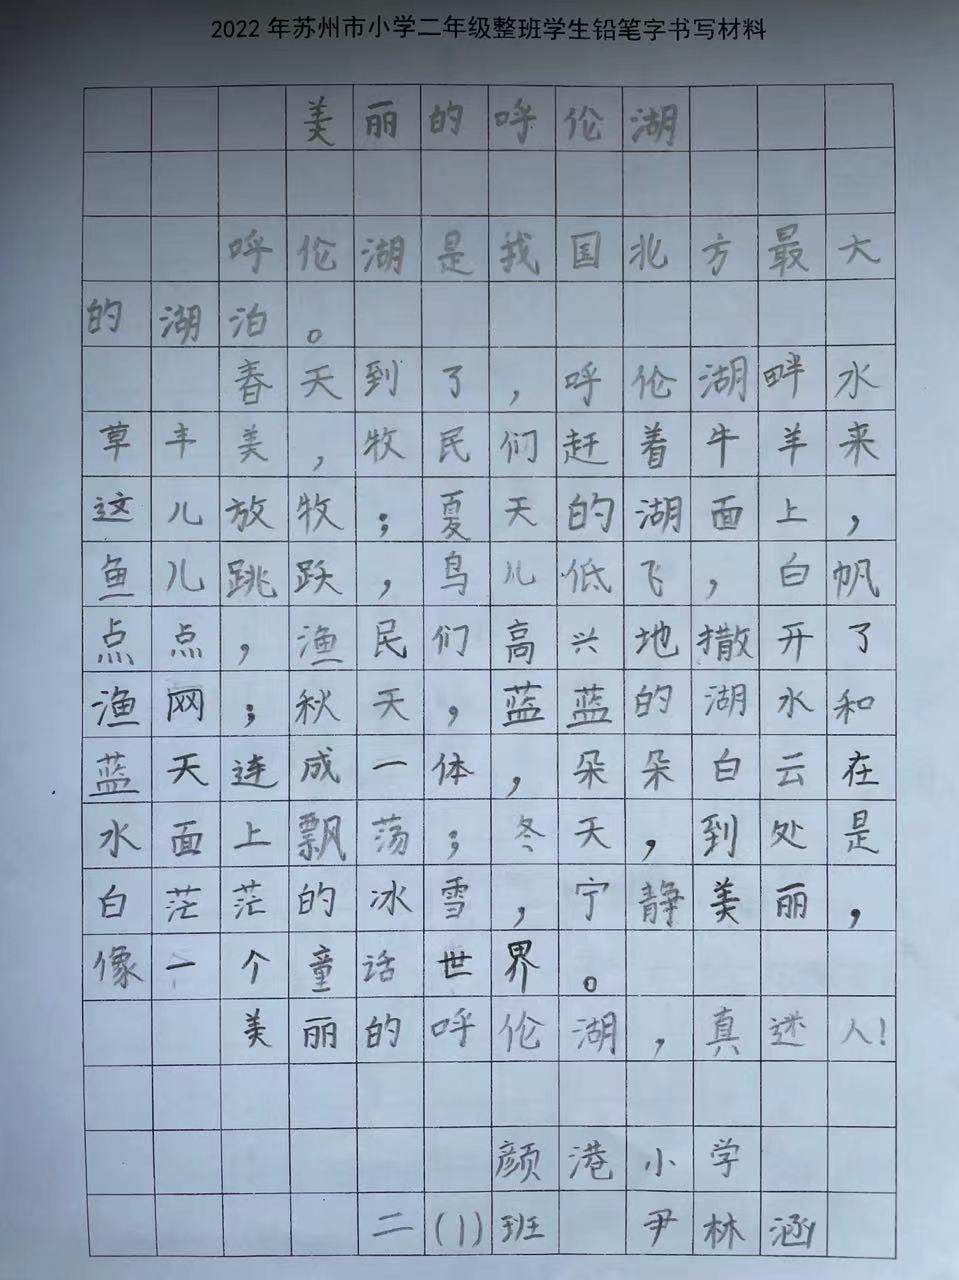 2022年苏州市小学二年级整班学生铅笔字书写材料
美丽的呼伦湖
呼伦湖是我国北方最大
的湖泊。
春天到了，呼伦湖畔水
草丰美，牧民们赶着牛羊来
这儿放牧；夏天的湖面上，
鱼儿跳跃，鸟儿低飞，白帆
点点，渔民们高兴地撒开了
渔网；秋天，蓝蓝的湖水和
蓝天连成一体，朵朵白云在
水面上飘荡；冬天，到处是
白茫茫的冰雪，宁静美丽，
像一个童话世界。
美丽的呼伦湖，真迷人！
颜港小学
二(1)班 尹林涵